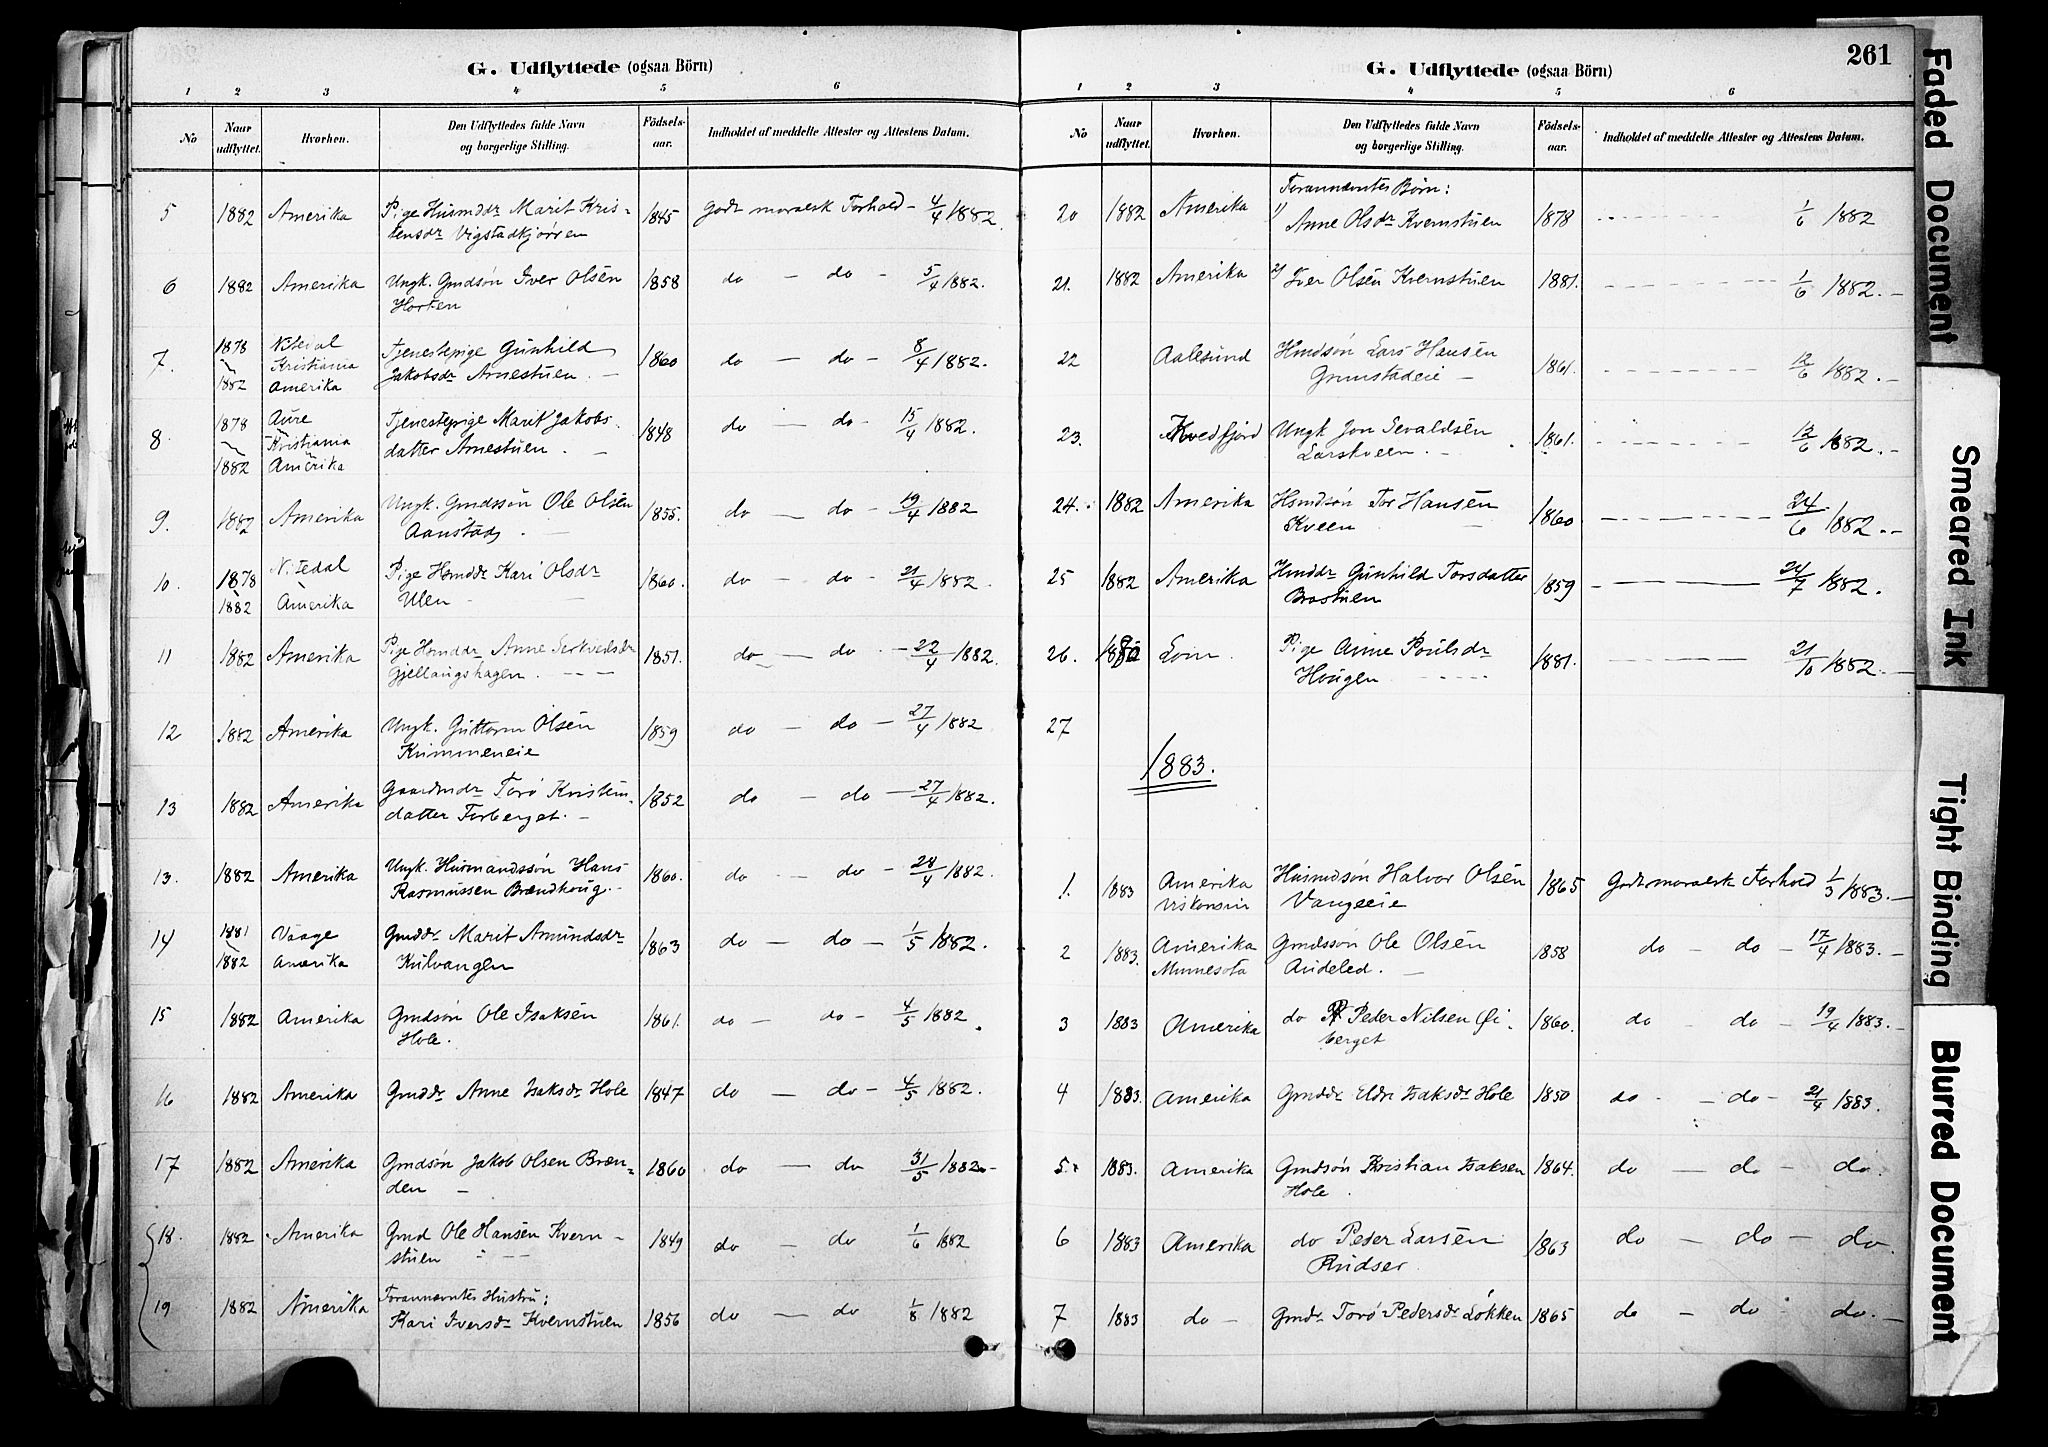 G. Udflyttede (ogsaa Börn)
1 2 3 4 5 6
No
Naar udflyttet.
Hvorhen.
Den Udflyttedes fulde Navn og borgerlige Stilling.
Födsels-aar.
Indholdet af meddelte Attester og Attestens Datum.
5 1882 Amerika Pige Husmddr Marit Kris- 1845 godt moralsk Forhold - 4/4 1882.
tensdr Vigstadkjørren
6 1882 Amerika Ungk. Gmdsön Iver Olsen 1858 do - do - 5/4 1882.
Horten
7. 1878 Nitedal Tjenestepige Gunhild 1860 do - do - 8/4 1882.
Kristiania Jakobsdr Arnestuen. -
1882 Amerika
8. 1878 Aure Tjenestepige Marit Jakobs- 1848 do - do - 15/4 1882.
Kristiania datter Arnestuen. -
1882 Amerika
9. 1882 Amerika Ungk. Gmdssön Ole Olsen 1855. do - do - 19/4 1882
Aanstad
10. 1878 Nitedal Pige Hsmddr Kari Olsdr 1860. do - do - 21/4 1882.
1882 Amerika Ulen -
11 1882 Amerika Pige Hsmddr Anne 1851. do - do - 22/4 1882.
Gjellaugshagen.
12 1882 Amerika Ungk. Guttorm Olsen 1859 do - do - 27/4 1882
Kummeneie
13 1882 Amerika Gaardmdr Torø Kristens- 1852 do - do - 27/4 1882.
datter Forberget. -
13. 1882 Amerika Ungk. Husmandssön Hans 1860. do - do - 28/4 1882.
Rasmussen Brændhoug. -
14 1881 Vaage Gmddr Marit Amundsdr 1863 do - do - 1/5 1882.
1882 Amerika Kulvangen
15 1882 Amerika Gmdsön Ole Isaksen 1861. do - do - 4/5 1882.
Hole.
16 1882 Amerika Gmddr Anne Isaksdr Hole 1847 do - do - 4/5 1882.
17 1882 Amerika Gmdsön Jakob Olsen Bræn- 1860 do - do 31/5 1882 -
den -
18. 1882 Amerika Gmd Ole Hansen Kvern- 1849 do - do 1/6 1882
stuen
19 1882 Amerika Forannævntes Hustru:
Kari Iversdr Kvernstuen 1856 do - do 1/8 1882
261
G. Udflyttede (ogsaa Börn)
1 2 3 4 5 6
No
Naar udflyttet.
Hvorhen.
Den Udflyttedes fulde Navn og borgerlige Stilling.
Födsels-aar.
Indholdet af meddelte Attester og Attestens Datum.
Forannævntes Børn:
20 1882 Amerika 1) Anne Olsdr Kvernstuen 1878 1/6 1882
21. 1882 Amerika 2) Iver Olsen Kvernstuen 1881. 1/6 1882. -
22 Aalesund Hmdsön Lars Hansen 1861. 12/6 1882. -
Grimstadeie -
23. Kvedfjord Ungk Jon Sevaldsen 1861. 12/6 1882. -
Larskveen. -
24. 1882 Amerika Hsmdsön Tor Hansen 1860 24/6 1882. -
Kveen
25 1882 Amerika Hmddr Gunhild Torsdatter 1859 24/7 1882.
Brostuen
26. 1882 Lom Pige Anne Poulsdr 1881. 21/10 1882. -
Haugen
27
1883.
1. 1883 Amerika Husmdsön Halvor Olsen 1865 Godt moralsk Forhold 1/3 1883. -
Viskonsin Vangeeie
2 1883. Amerika Gmdssön Ole Olsen 1858 do - do - 17/4 1883. -
Minnesota Andeled. -
3 1883 Amerika do Peder Nilsen Øi- 1860. do do - 19/4 1883. -
berget
4 1883. Amerika Gmddr Eldri Isaksdr Hole 1850 do - do - 21/4 1883.
5. 1883. Amerika Gmdsön Kristian Isaksen 1864. do - do - do.
Hole.
6 1883 Amerika do Peder Larsen 1863 do - do - do.
Rudser.
7 1883 do - Gmdr Torø Pedersdr Løkken 1865 do - do - do. -
Faded Document
Smeared Ink
Tight Binding
Blurred Document